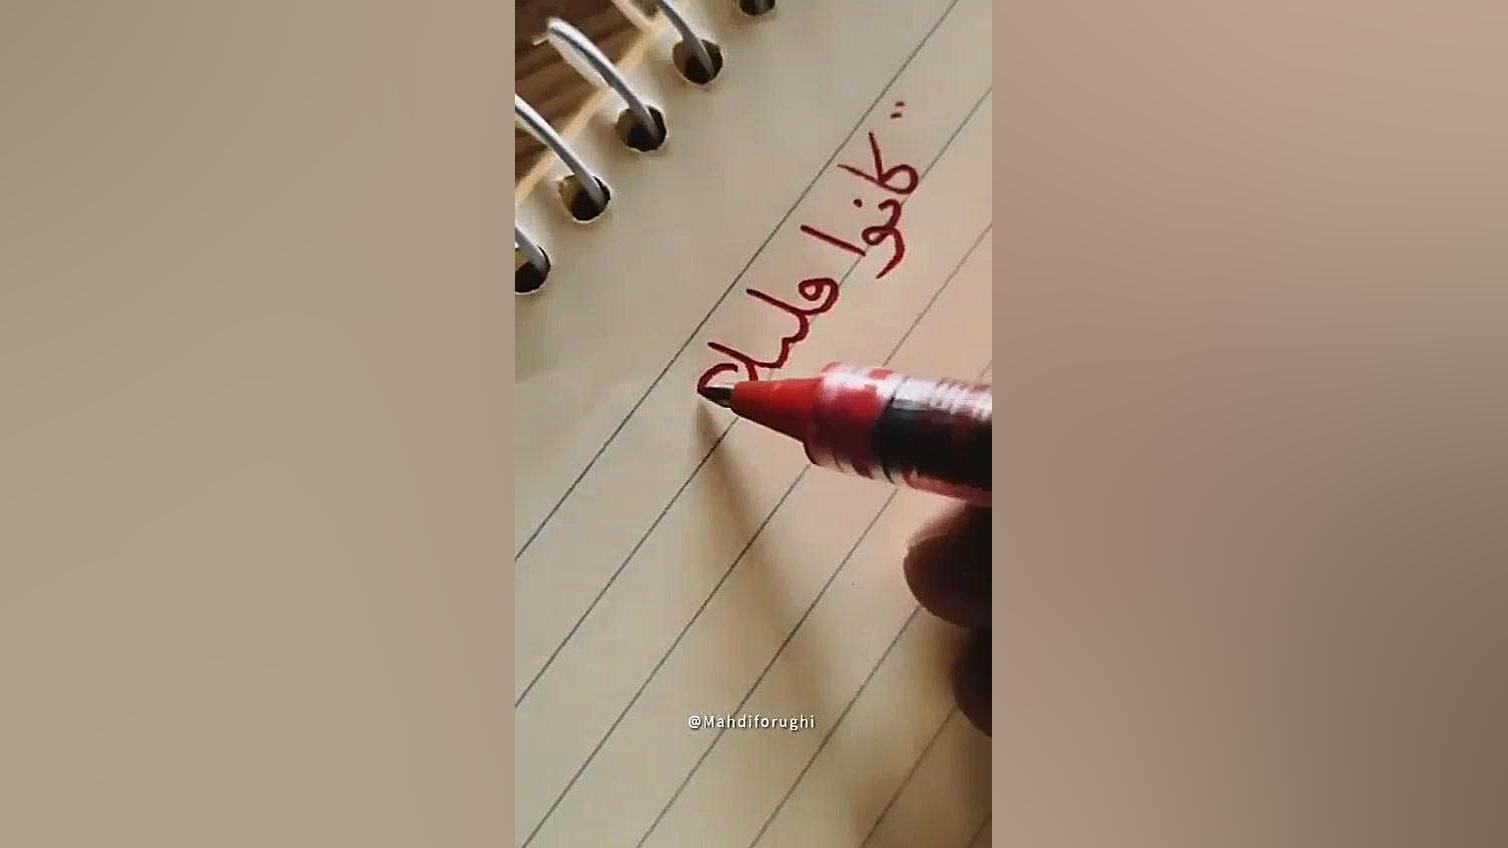 "كانوا قليلا
@Mahdiforughi